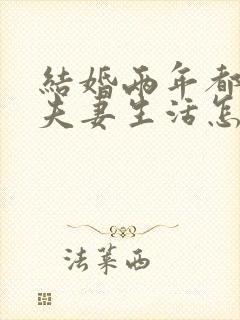 結婚兩年都
夫妻生活怎
法萊西